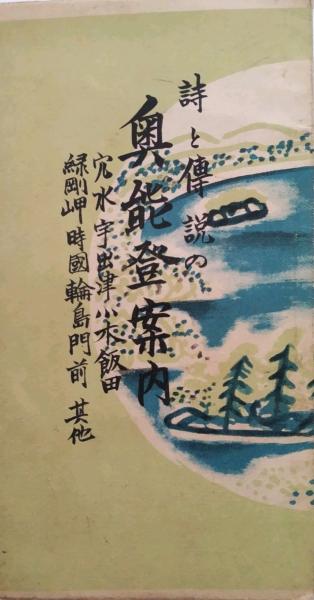 詩と傳説の
奥能登案内
穴水宇出津小木飯田
緑剛岬時國輪島門前 其他